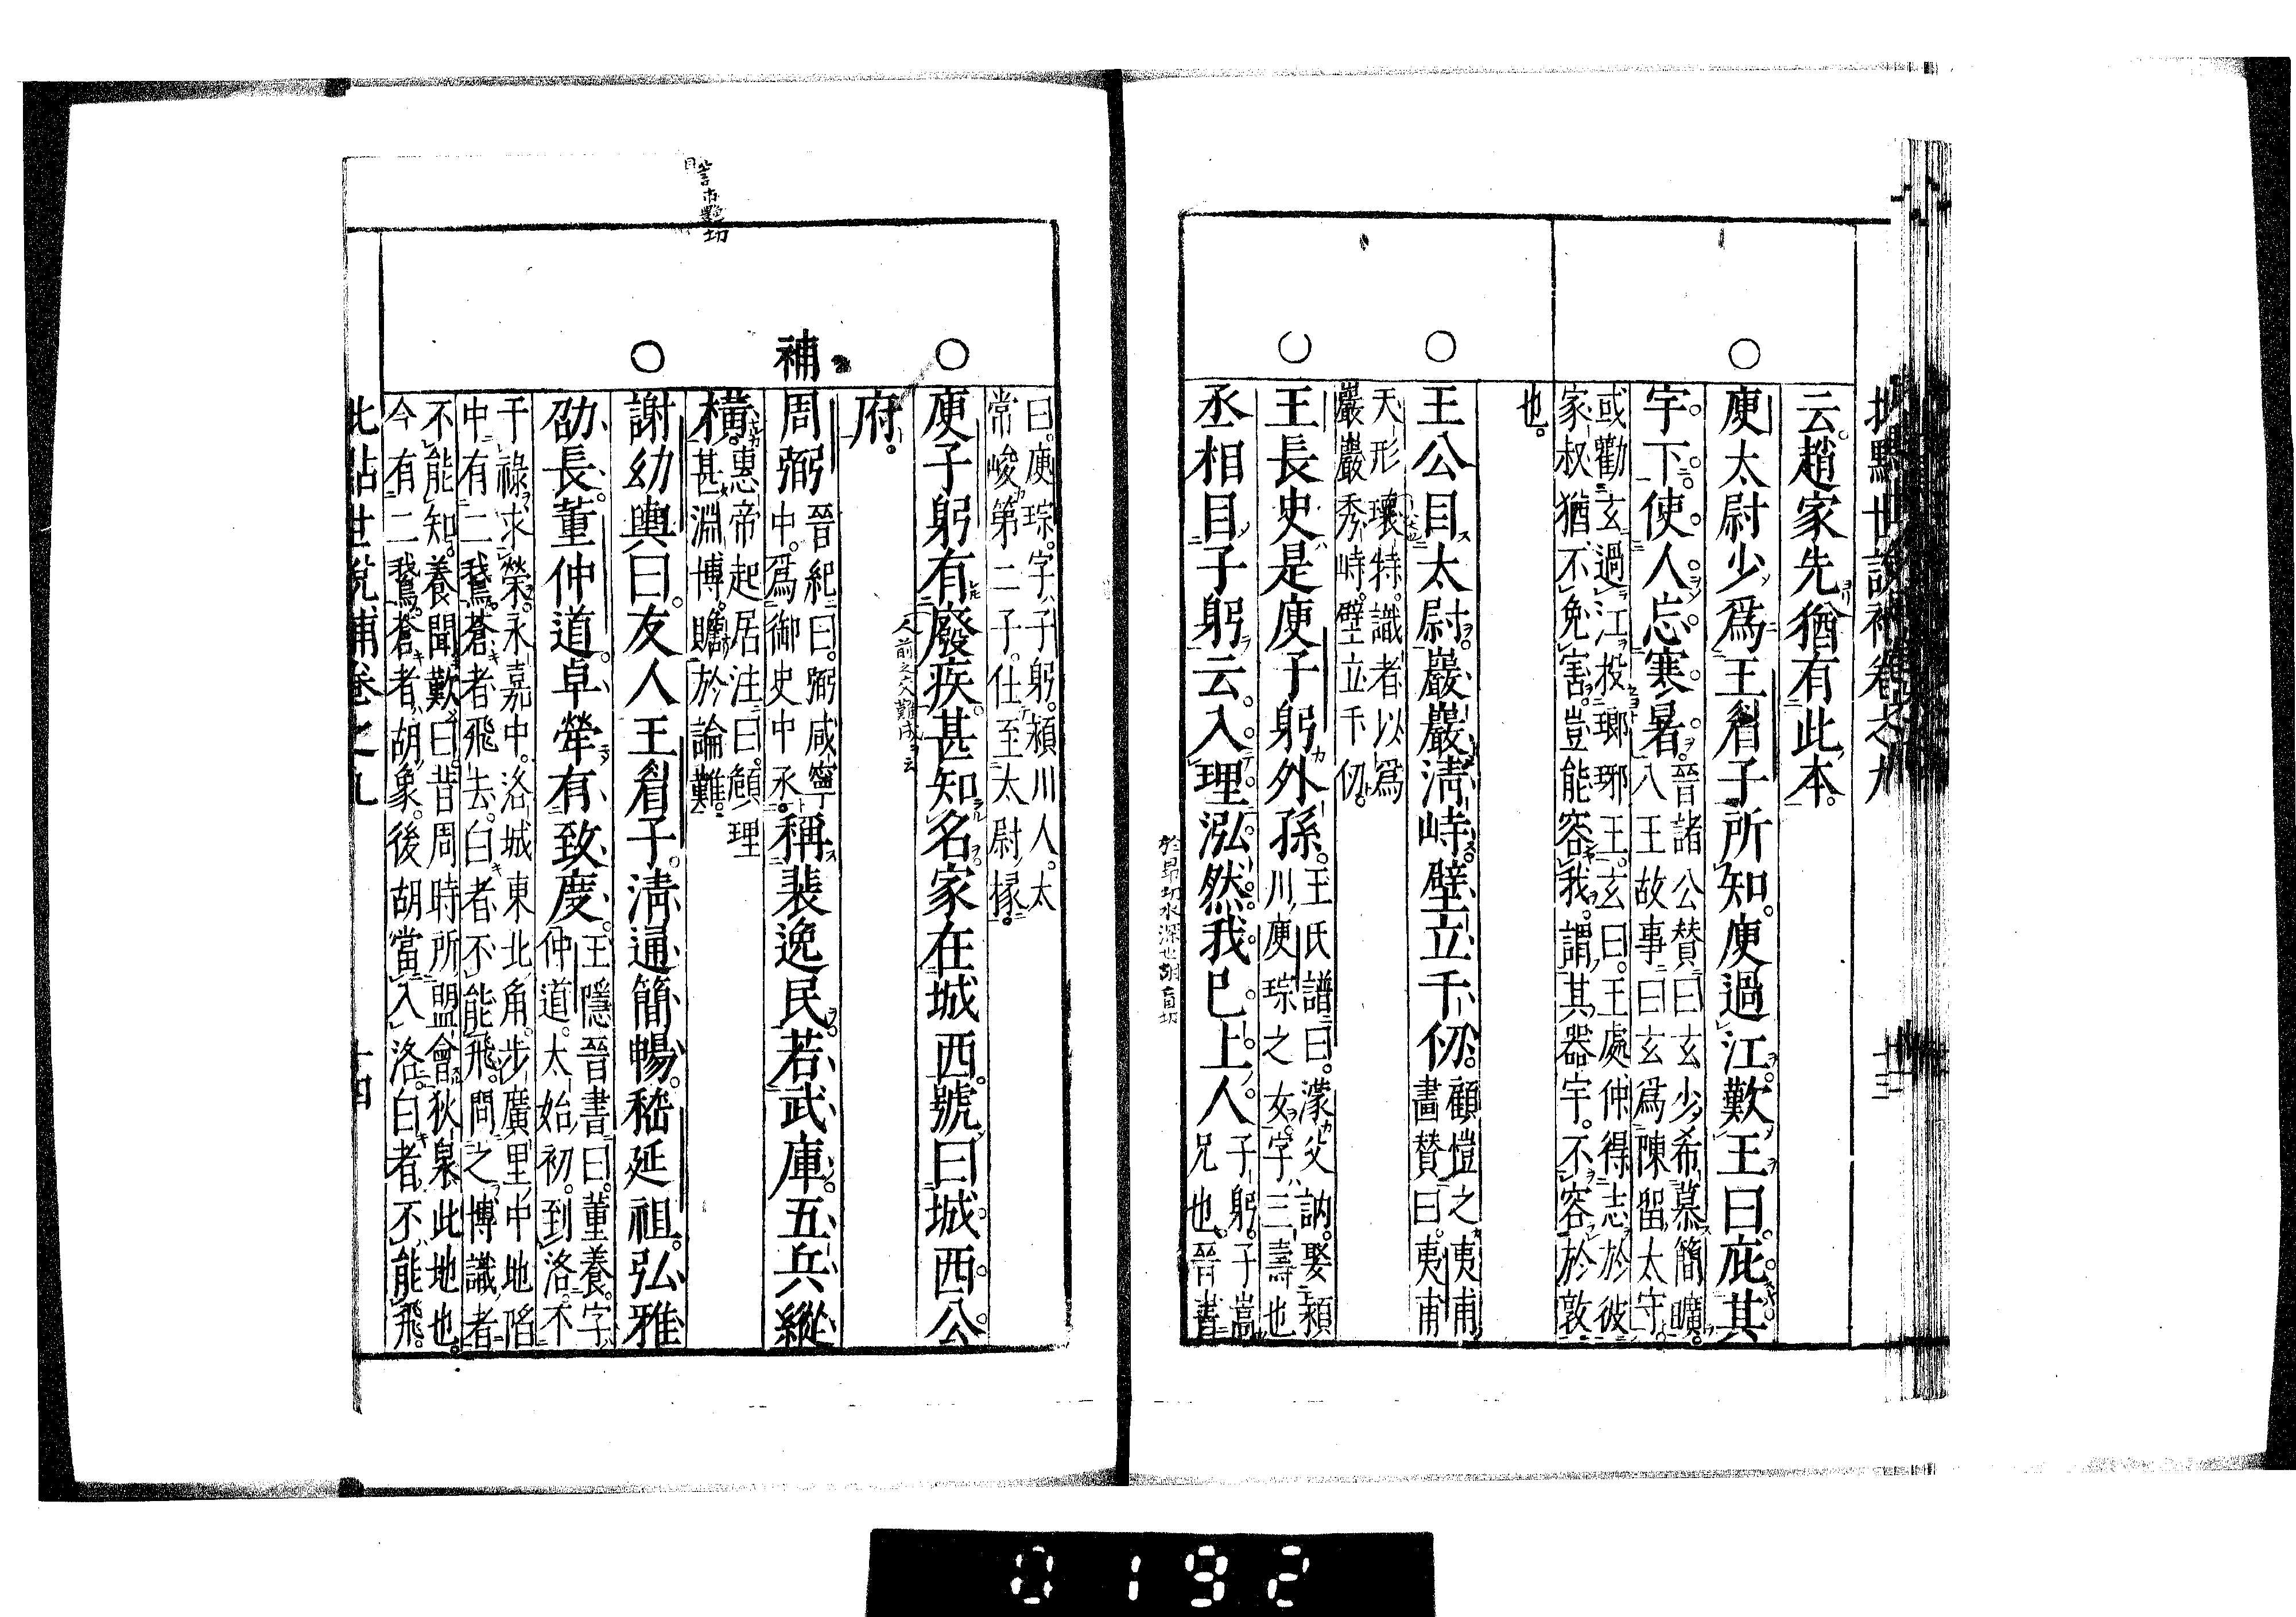 批點世說補卷之九
十三
云趙家先猶有此本。
○
庾太尉少爲王眉子所知。庾過江歎王曰。庇其
宇。下。使。人。忘。寒。暑。
晉諸公贊曰玄少希慕簡曠。
八王故事曰玄爲陳留太守。
或勸玄過江投瑯琊王。玄曰。王處仲得志於彼
家叔猶不免害。豈能容我。謂其器宇。不容於敦
也。
○
王公目太尉。巖巖淸峙。壁立千仞。
顧愷之夷甫
畫贊曰。夷甫
天形瓌特。識者以爲
巖巖秀峙。壁立千仞。
○
王長史是庾子躬外孫。
王氏譜曰。濛父訥。娶潁
川庾琮之女。字三壽也
丞相目子躬云。入理泓然。我已上人。
子躬。子嵩
兄也。晉書
於昂切水深也胡盲切
曰。庾琮。字子躬。潁川人。太
常峻第二子。仕至太尉掾。
○
庾子躬有廢疾。甚知名。家在城西。號曰城西公
府。
補
周弼
晉紀曰。弼咸寧
中。爲御史中丞。
稱裴逸民。若武庫。五兵縱
橫。
惠帝起居注曰。頠理
甚淵博。贍於論難。
贍市豔切
○
謝幼輿曰。友人王眉子。淸通簡暢。嵇延祖。弘雅
劭長。董仲道。卓犖有致度。
王隱晉書曰。董養。字
仲道。太始初。到洛。不
干祿求榮。永嘉中。洛城東北角。步廣里中地陷
中有二鵞。蒼者飛去。白者不能飛。問之博識者
不能知。養聞歎曰。昔周時所盟會狄泉此地也。
今有二鵞。蒼者胡象。後胡當入洛。白者不能飛。
批點世說補卷之九
十四